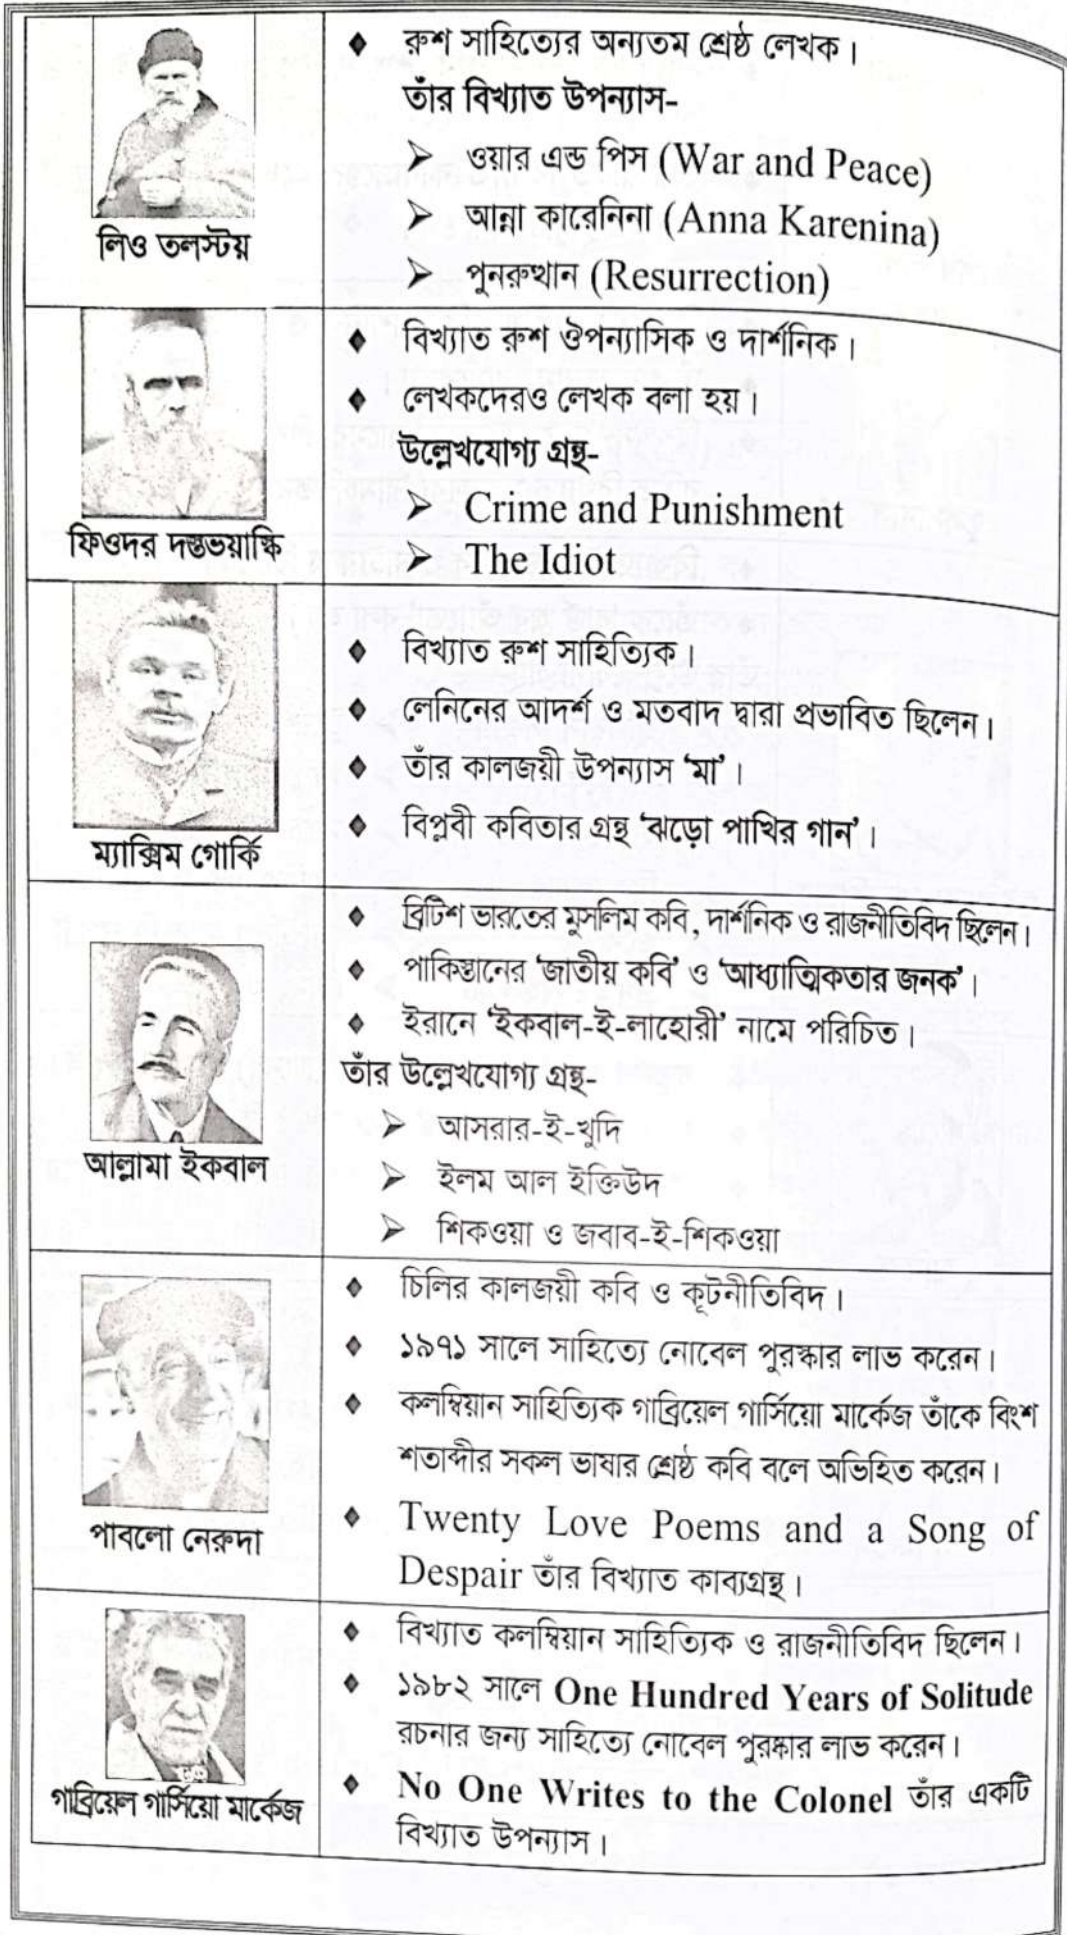 ♦ রুশ সাহিত্যের অন্যতম শ্রেষ্ঠ লেখক।
তাঁর বিখ্যাত উপন্যাস-
➢ ওয়ার এন্ড পিস (War and Peace)
➢ আন্না কারেনিনা (Anna Karenina)
➢ পুনরুত্থান (Resurrection)
লিও তলস্টয়
♦ বিখ্যাত রুশ ঔপন্যাসিক ও দার্শনিক।
♦ লেখকদেরও লেখক বলা হয়।
উল্লেখযোগ্য গ্রন্থ-
➢ Crime and Punishment
➢ The Idiot
ফিওদর দস্তভয়াস্কি
♦ বিখ্যাত রুশ সাহিত্যিক।
♦ লেনিনের আদর্শ ও মতবাদ দ্বারা প্রভাবিত ছিলেন।
♦ তাঁর কালজয়ী উপন্যাস ‘মা’।
♦ বিপ্লবী কবিতার গ্রন্থ ‘ঝড়ো পাখির গান’।
ম্যাক্সিম গোর্কি
♦ ব্রিটিশ ভারতের মুসলিম কবি, দার্শনিক ও রাজনীতিবিদ ছিলেন।
♦ পাকিস্তানের ‘জাতীয় কবি’ ও ‘আধ্যাত্মিকতার জনক’।
♦ ইরানে ‘ইকবাল-ই-লাহোরী’ নামে পরিচিত।
তাঁর উল্লেখযোগ্য গ্রন্থ-
➢ আসরার-ই-খুদি
➢ ইলম আল ইক্তিউদ
➢ শিকওয়া ও জবাব-ই-শিকওয়া
আল্লামা ইকবাল
♦ চিলির কালজয়ী কবি ও কূটনীতিবিদ।
♦ ১৯৭১ সালে সাহিত্যে নোবেল পুরস্কার লাভ করেন।
♦ কলম্বিয়ান সাহিত্যিক গাব্রিয়েল গার্সিয়ো মার্কেজ তাঁকে বিংশ
শতাব্দীর সকল ভাষার শ্রেষ্ঠ কবি বলে অভিহিত করেন।
♦ Twenty Love Poems and a Song of
Despair তাঁর বিখ্যাত কাব্যগ্রন্থ।
পাবলো নেরুদা
♦ বিখ্যাত কলম্বিয়ান সাহিত্যিক ও রাজনীতিবিদ ছিলেন।
♦ ১৯৮২ সালে One Hundred Years of Solitude
রচনার জন্য সাহিত্যে নোবেল পুরষ্কার লাভ করেন।
♦ No One Writes to the Colonel তাঁর একটি
বিখ্যাত উপন্যাস।
গাব্রিয়েল গার্সিয়ো মার্কেজ